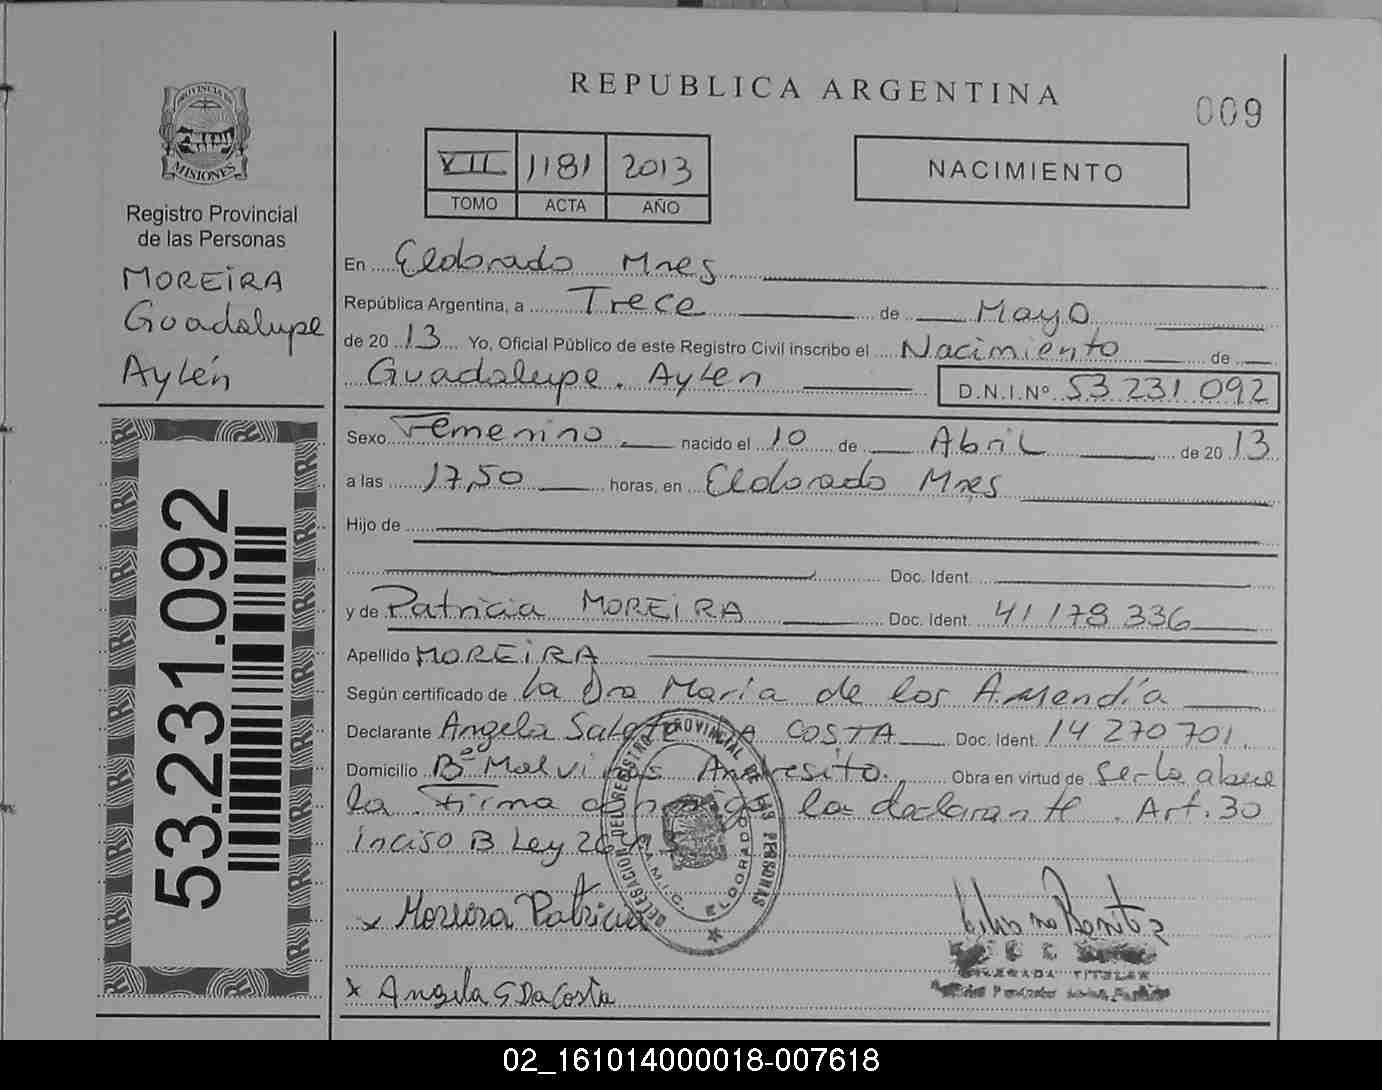 REPUBLICA ARGENTINA
009
PROVINCIA DE
MISIONES
Registro Provincial
de las Personas
MOREIRA
Guadalupe
Aylén
53.231.092
VII 1181 2013
TOMO ACTA AÑO
NACIMIENTO
En Eldorado Mnes
República Argentina, a Trece de Mayo
de 20 13 Yo, Oficial Público de este Registro Civil inscribo el Nacimiento de
Guadalupe. Aylen D.N.I.Nº 53 231 092
Sexo Femenino nacido el 10 de Abril de 20 13
a las 17,50 horas, en Eldorado Mnes
Hijo de
Doc. Ident.
y de Patricia MOREIRA Doc. Ident. 41 178 336
Apellido MOREIRA
Según certificado de la Dra Maria de los A.
Declarante Angela DA COSTA Doc. Ident. 14 270 701
Domicilio Bº Malvinas Andresito. Obra en virtud de ser la
la firma la declarante. Art. 30
inciso B Ley
DELEGACION DEL REGISTRO PROVINCIAL DE LAS PERSONAS
ELDORADO
x Moreira Patricia
Benitez
TITULAR
x Angela S Da Costa
02_161014000018-007618